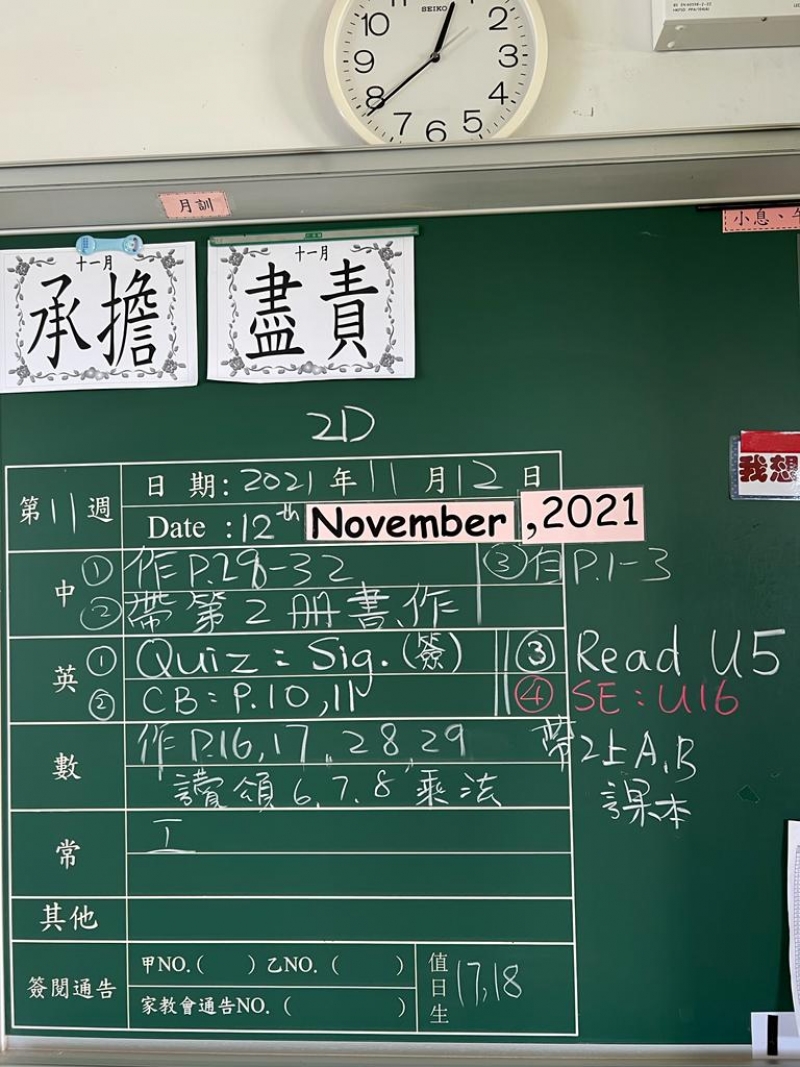 SEIKO
10 11 1 2
9 3
8 4
7 6 5
月訓
小息、
十一月
承擔
十一月
盡責
我想
2D
第11週
日期:2021年11月12日
Date :12th November ,2021
中
① 作P.28-32 ③ 作P.1-3
② 帶第2冊書、作
英
① Quiz = Sig. (簽) ③ Read U5
② CB = P.10,11 ④ SE : U16
數
作P.16,17,28,29 帶2上A,B
讀頌6,7,8乘法 課本
常
工
其他
簽閱通告
甲NO.( ) 乙NO. ( )
家教會通告NO. ( )
值日生 17,18